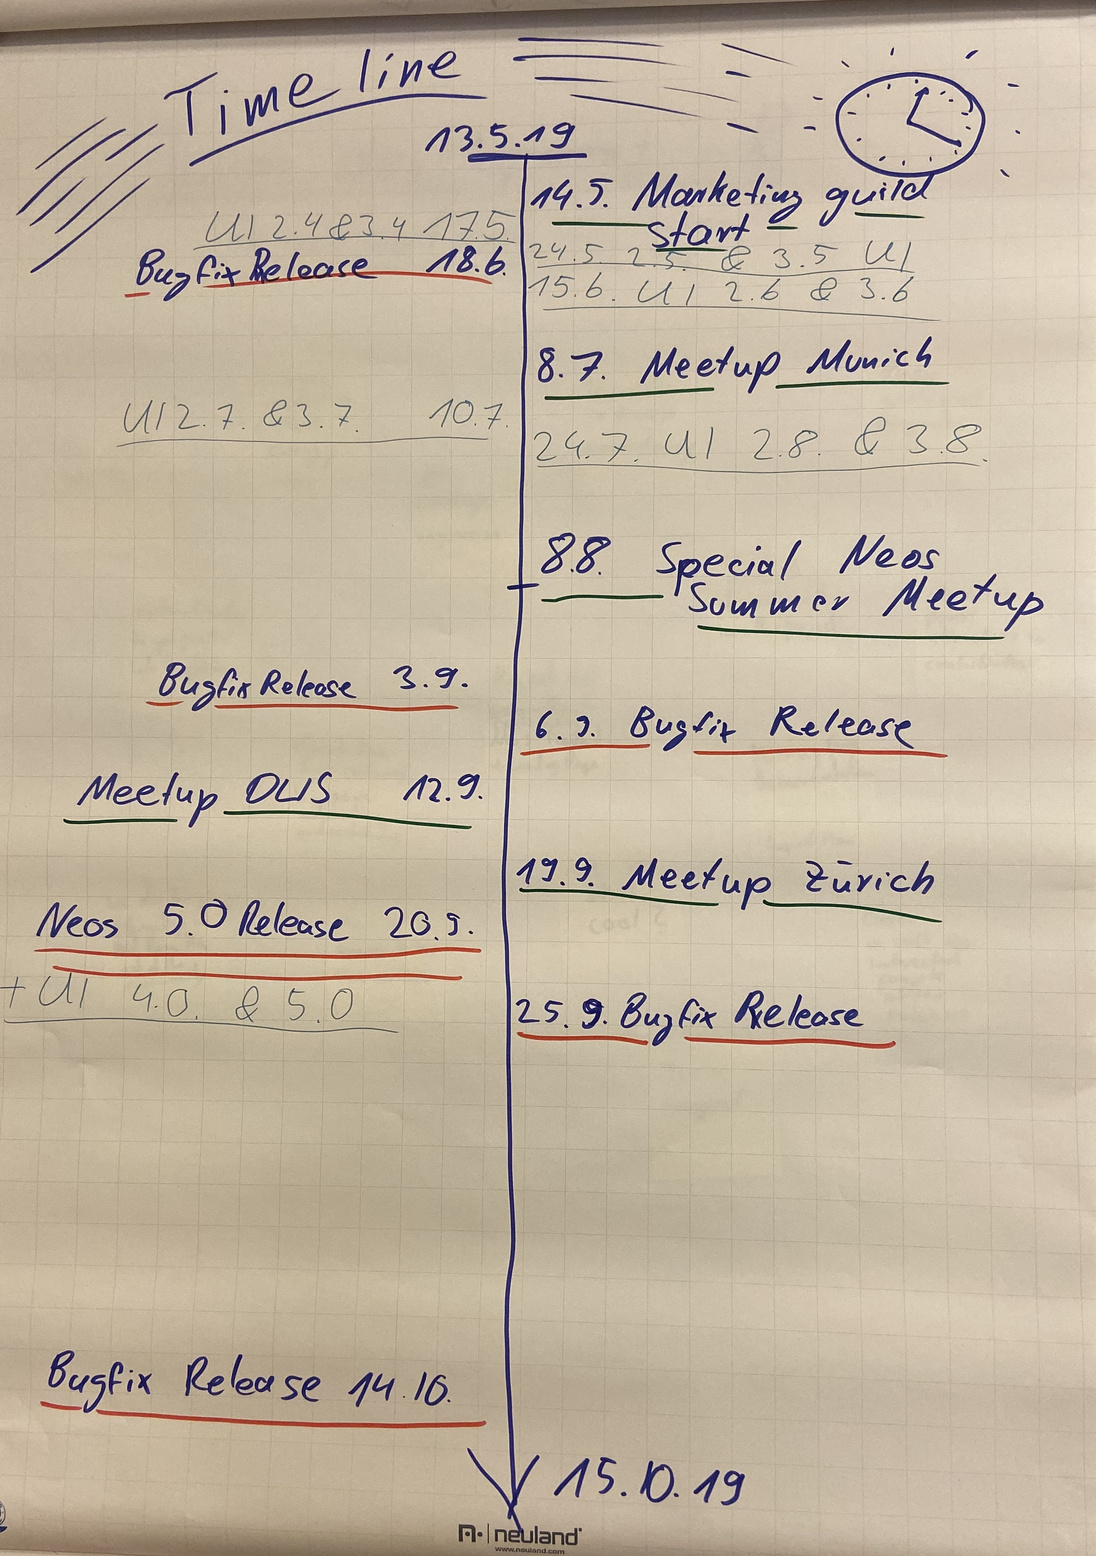 Time line
13.5.19
14.5. Marketing guild
Start
UI 2.4 & 3.4 17.5
24.5 2.5. & 3.5 UI
Bugfix Release 18.6.
15.6. UI 2.6 & 3.6
8.7. Meetup Munich
UI 2.7. & 3.7. 10.7.
24.7. UI 2.8. & 3.8.
8.8. Special Neos
Summer Meetup
Bugfix Release 3.9.
6.9. Bugfix Release
Meetup DUS 12.9.
19.9. Meetup Zürich
Neos 5.0 Release 20.9.
+ UI 4.0. & 5.0
25.9. Bugfix Release
Bugfix Release 14.10.
15.10.19
neuland
www.neuland.com